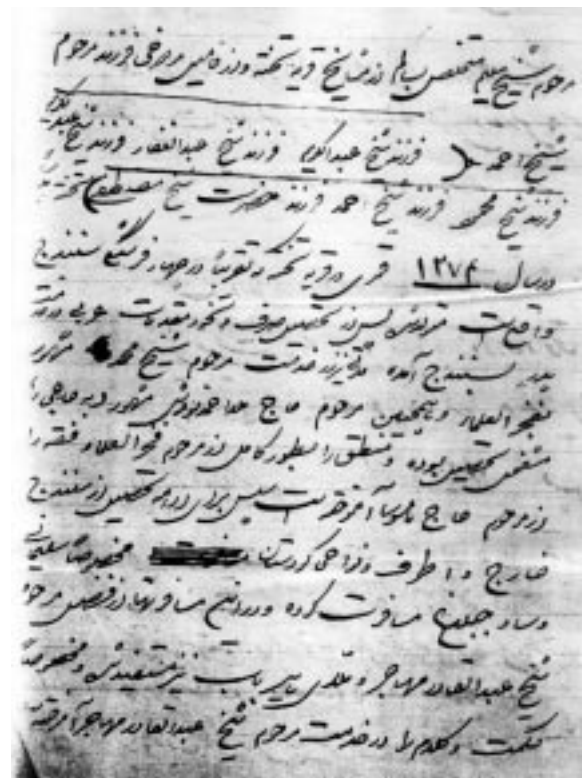 مرحوم شیخ سلیم متخلص بسالم از مشایخ قریه تخته و از فامیل مردوخی فرزند مرحوم
شیخ احمد فرزند شیخ عبدالکریم فرزند شیخ عبدالغفار فرزند شیخ عبدالکریم
فرزند شیخ محمد فرزند شیخ احمد فرزند حضرت شیخ مصطفی تخته
در سال ۱۲۷۴ قمری در قریه تخته که تقریباً در چهار فرسنگی سنندج
واقع است متولد پس از تحصیل صرف و نحو و مقدمات عربی در خدمت
پدر بسنندج آمده در خدمت مرحوم شیخ محمد مشهور
بفخرالعلماء و همچنین مرحوم حاج ملا خدر مشهور به حاجی
مشغول تحصیل بوده و منطق را بطور کامل از مرحوم فخرالعلماء و فقه را
از مرحوم حاج آموخته است سپس برای ادامه تحصیل از سنندج
خارج و اطراف و نواحی کردستان مخصوصاً سلیمانی
و ساوجبلاغ مسافرت کرده و در این مسافرتها از فضل مرحوم
شیخ عبدالقادر مهاجر و ملای نیز مستفید شده و مخصوصاً
حکمت و کلام را در خدمت مرحوم شیخ عبدالقادر مهاجر آموخته